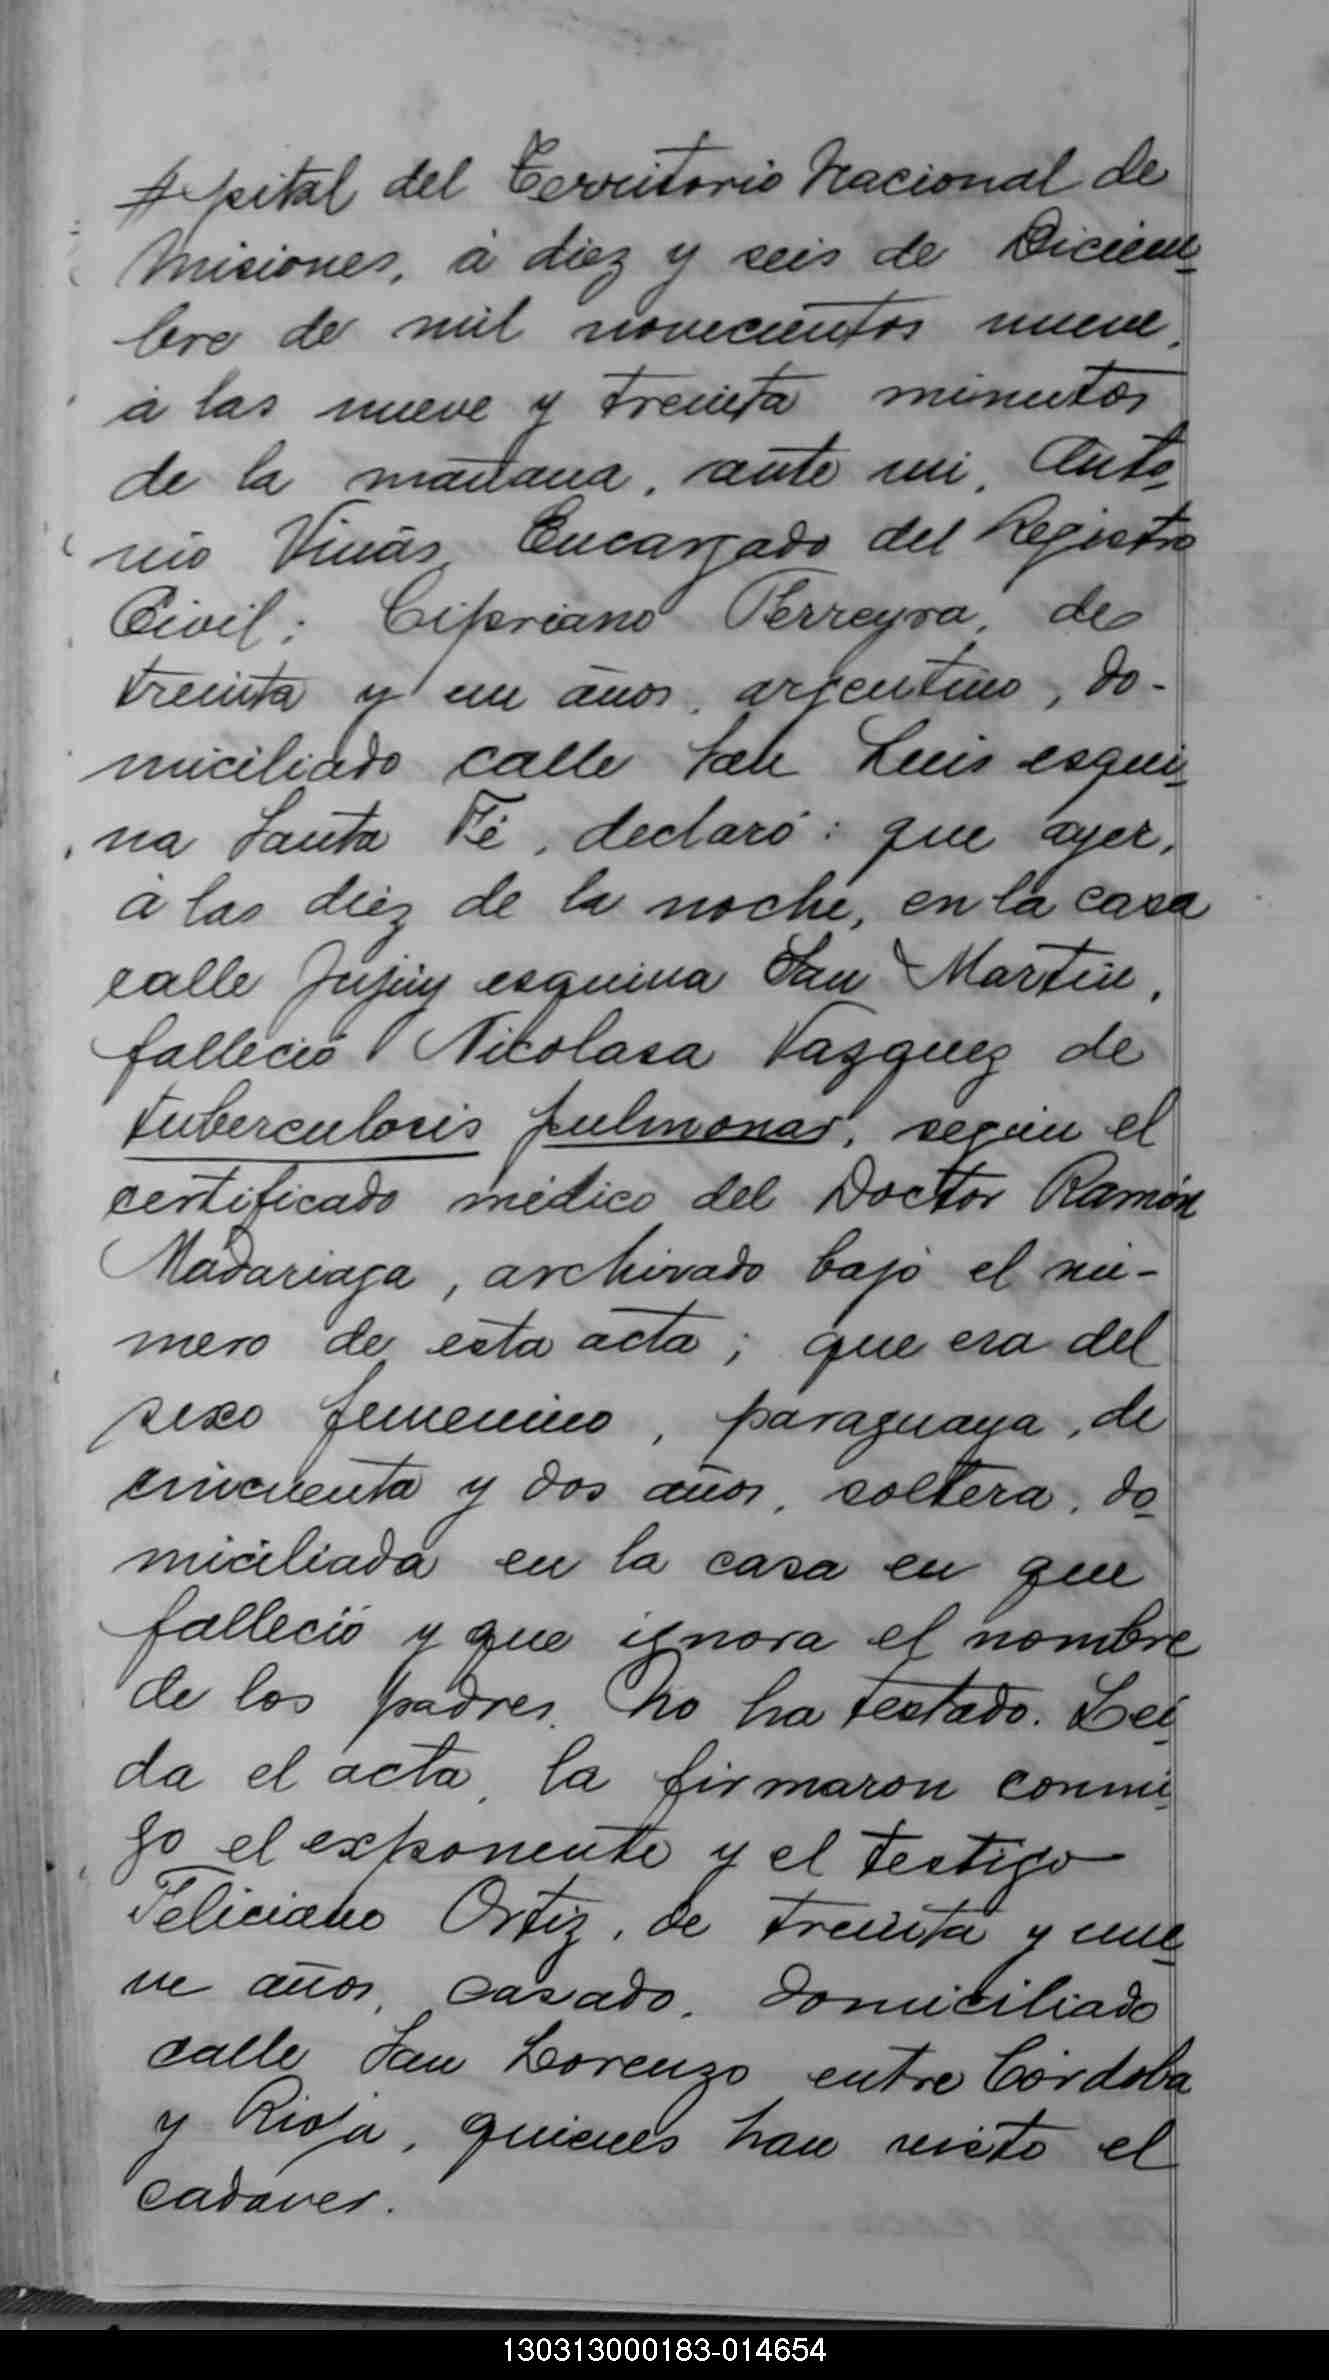 pital del Territorio Nacional de
Misiones, á diez y seis de Diciem-
bre de mil novecientos nueve,
á las nueve y treinta minutos
de la mañana, ante mi, Anto-
nio Viñas, Encargado del Registro
Civil; Cipriano Ferreyra, de
treinta y un años, argentino, do-
miciliado calle San Luis esqui-
na Santa Fé, declaró: que ayer,
á las diez de la noche, en la casa
calle Jujuy esquina San Martin,
falleció Nicolasa Vazquez de
tuberculosis pulmonar, según el
certificado médico del Doctor Ramón
Madariaga, archivado bajo el nú-
mero de esta acta; que era del
sexo femenino, paraguaya, de
cincuenta y dos años, soltera, do-
miciliada en la casa en que
falleció y que ignora el nombre
de los padres. No ha testado. Leí-
da el acta, la firmaron conmi-
go el exponente y el testigo
Feliciano Ortiz, de treinta y nue-
ve años, casado, domiciliado
calle San Lorenzo entre Córdoba
y Rioja, quienes han visto el
cadaver.
130313000183-014654